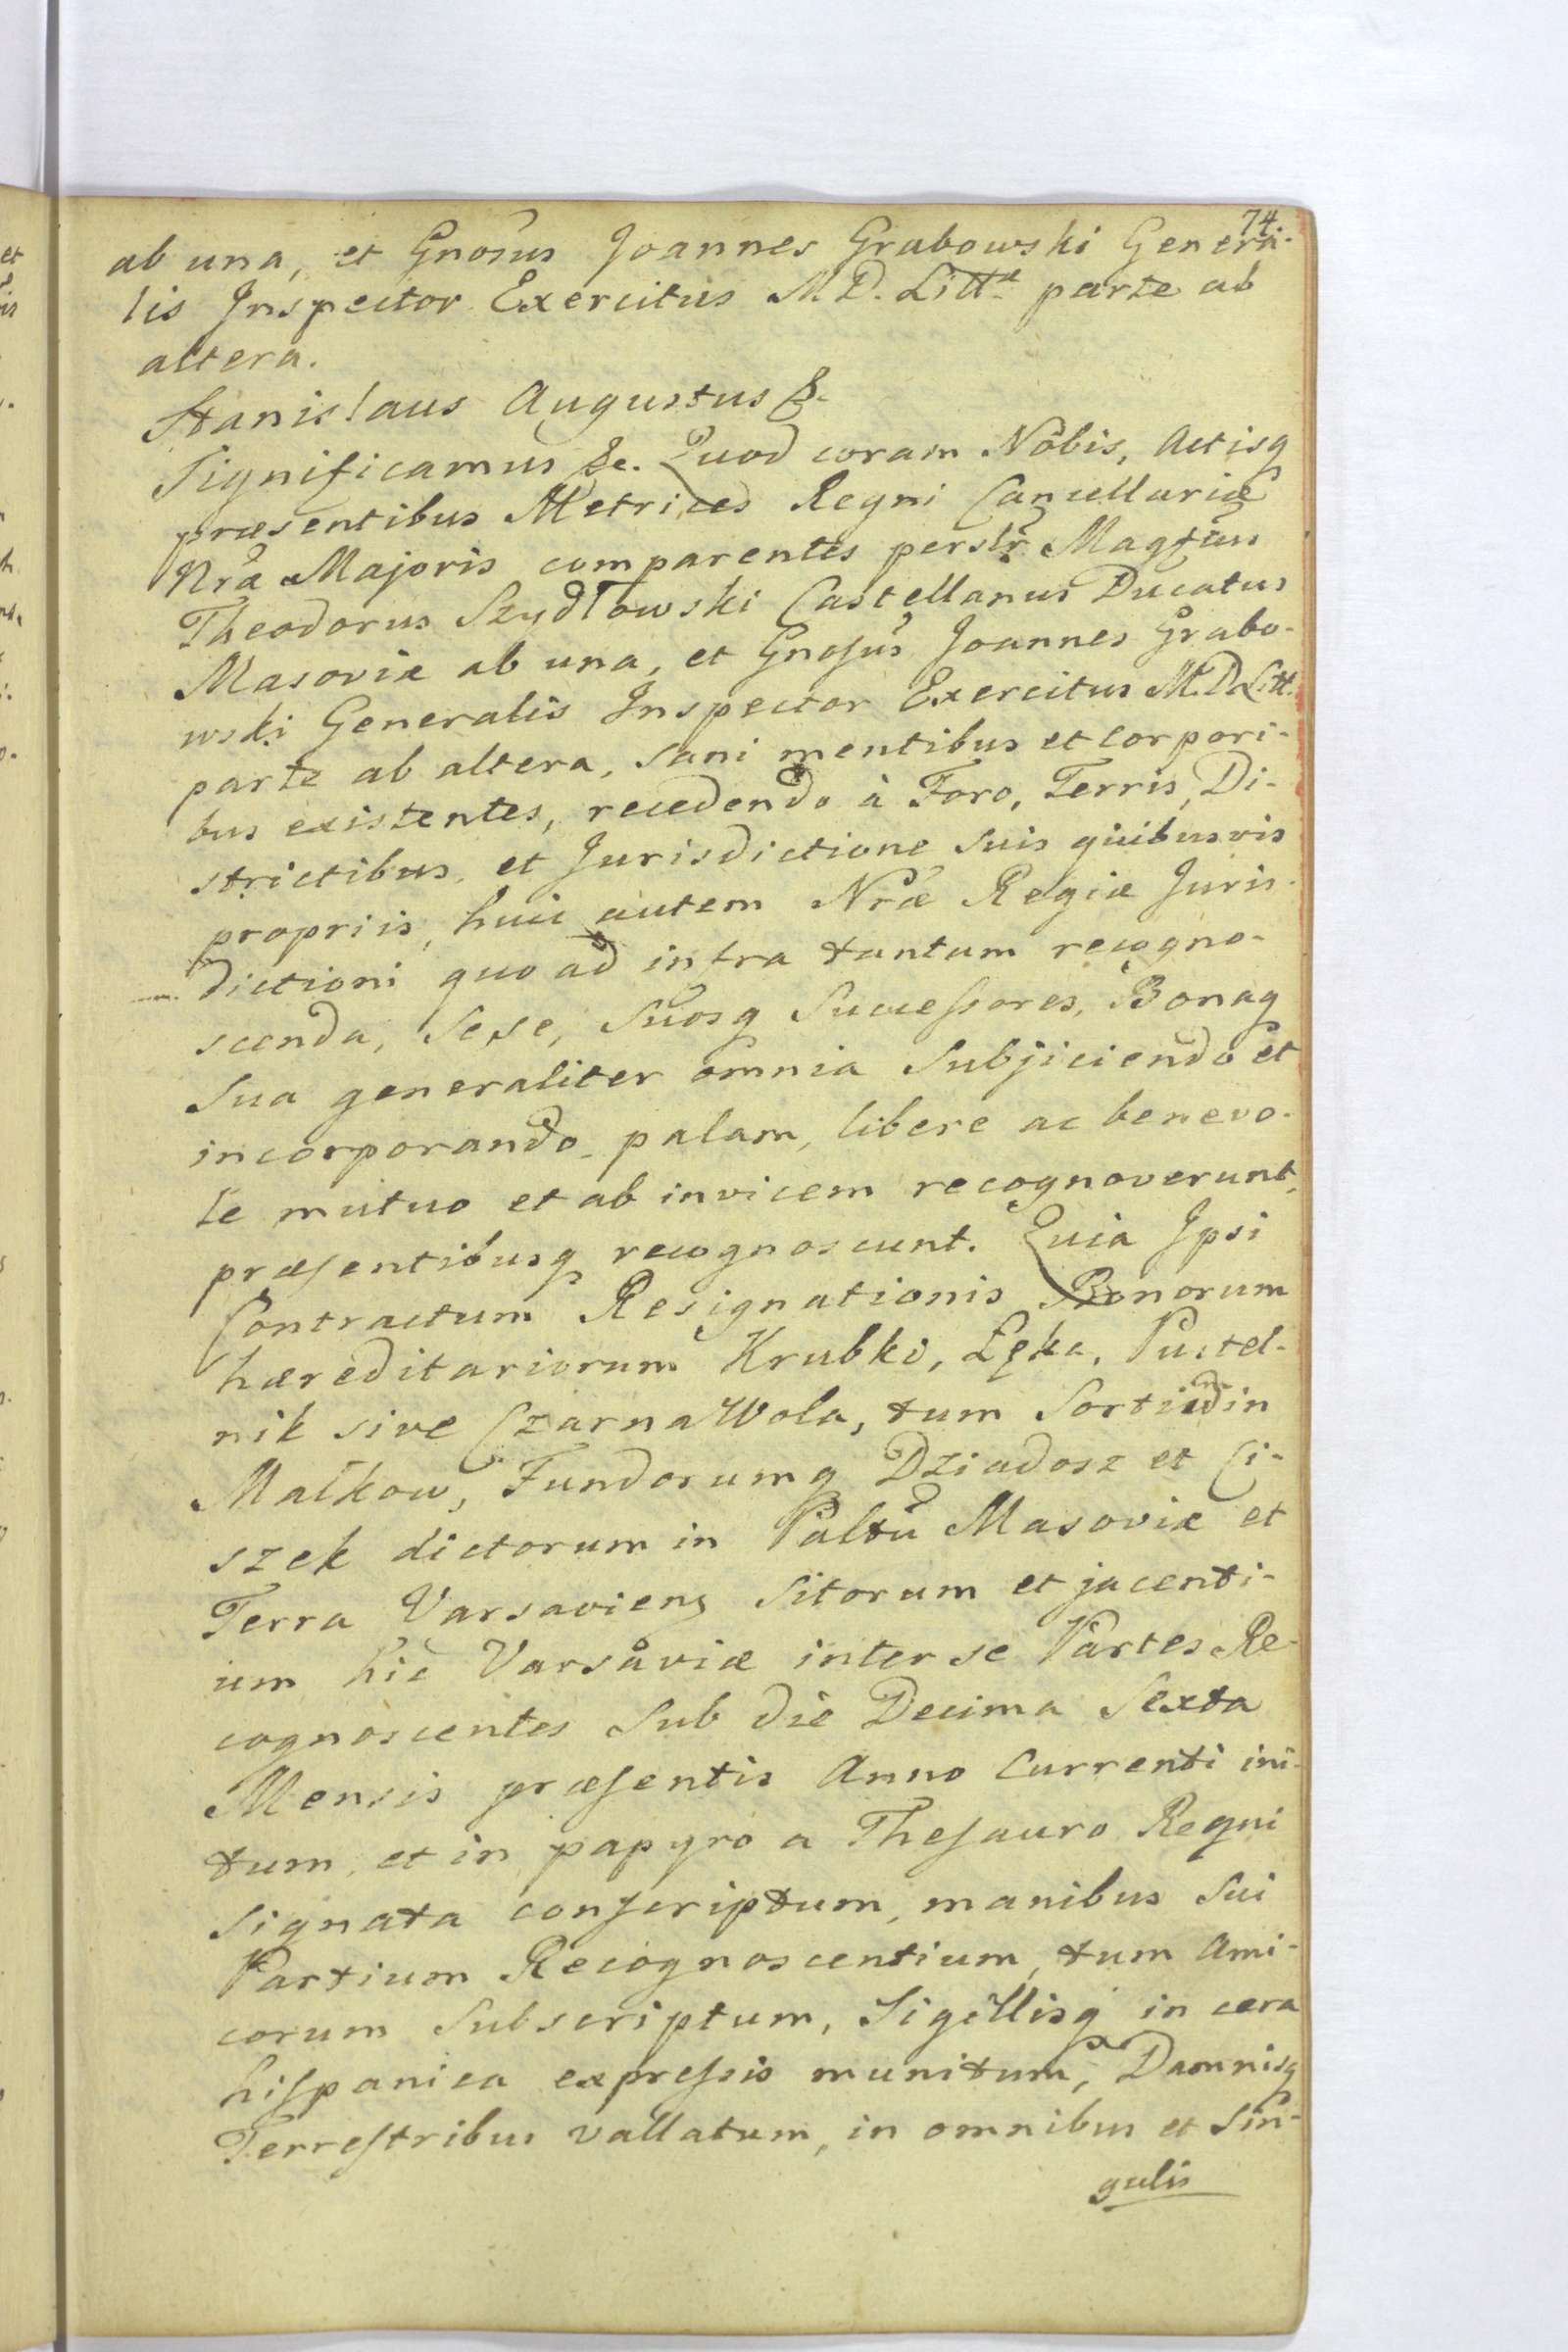 74.
ab una, et Gnosus Joannes Grabowski Genera-
lis Inspector Exercitus M.D. Litt. parte ab
altera.
Stanislaus Augustus &.
Significamus &c. Quod coram Nobis, Actisq
præsentibus Metrices Regni Cancellariæ
Nræ Majoris comparentes perslr Magfcus
Theodorus Szydłowski Castellanus Ducatus
Masoviæ ab una, et Gnosus Joannes Grabo-
wski Generalis Inspector Exercitus M.D. Litt.
parte ab altera, sani mentibus et corpori-
bus existentes, recedendo à Foro, Terris, Di-
strictibus, et Jurisdictione suis quibusvis
propriis, huic autem Nræ Regiæ Juris-
dictioni quo ad infra tantum recogno-
scenda, sese, suosq Successores, Bonaq
sua generaliter omnia subjiciendo et
incorporando, palam, libere ac benevo-
le mutuo et ab invicem recognoverunt,
præsentibusq recognoscunt. Quia Ipsi
Contractum Resignationis Bonorum
hæreditariorum Krubki, Łęka, Pustel-
nik sive Czarna Wola, tum Sortium in
Małkow, Fundorumq Dziadosz et Ci-
szek dictorum in Paltu Masoviæ et
Terra Varsaviens sitorum et jacenti-
um hic Varsaviæ inter se Partes Re-
cognoscentes sub die Decima Sexta
Mensis præsentis Anno Currenti ini-
tum, et in papyro a Thesauro Regni
signata conscriptum, manibus sui
Partium Recognoscentium, tum Ami-
corum subscriptum, Sigillisq in cera
hispanica expressis munitum, Damnisq
Terrestribus vallatum, in omnibus et sin-
gulis